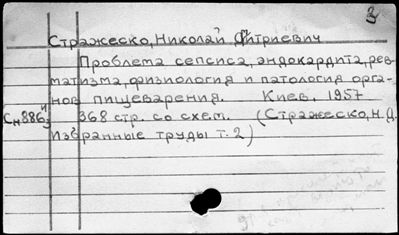 Стражеско, Николай Дмитриевич
Проблема сепсиса, эндокардита, рев-
матизма, физиология и патология орга-
нов пищеварения. Киев, 1957
Сн886 и/3 368 стр. со схем. (Стражеско, Н.Д.
Избранные труды т. 2)